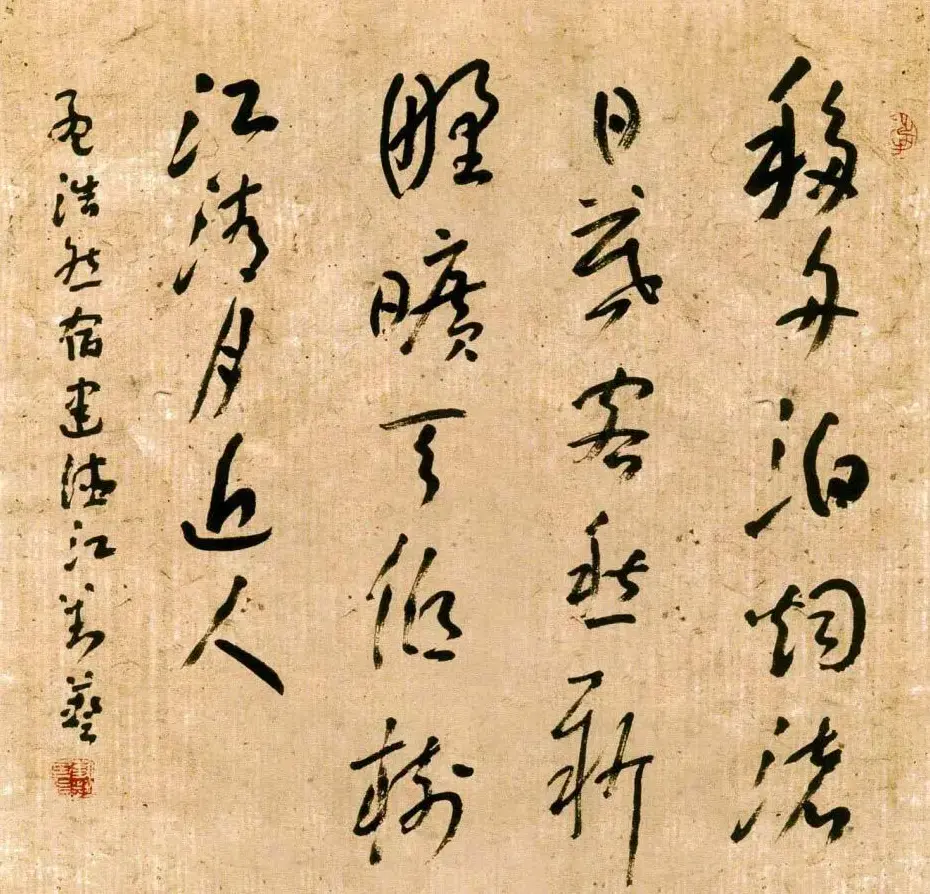 移舟泊烟渚
日暮客愁新
野曠天低樹
江清月近人
孟浩然宿建德江刘藝